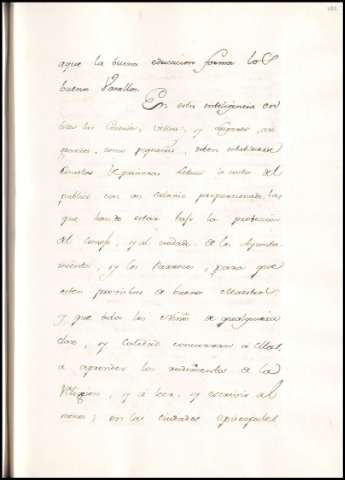 aque la buena educacion forma los
buenos Vasallos.
En esta inteligencia en
todas las Ciudades, Villas, y Lugares, asi
grandes, como pequeños, deben establecerse
Escuelas de primeras Letras à costa del
publico con un salario proporcionado, las
que han de estar bajo la proteccion
del Consejo, y al cuidado de los Ayunta
mientos, y los Parrocos, para que
esten provistas de buenos Maestros,
y que todos los Niños de qualquiera
clase, y calidad concurran à ellas,
a aprender los rudimentos de la
Religion, y à leer, y escribir al
menos; en las ciudades episcopales